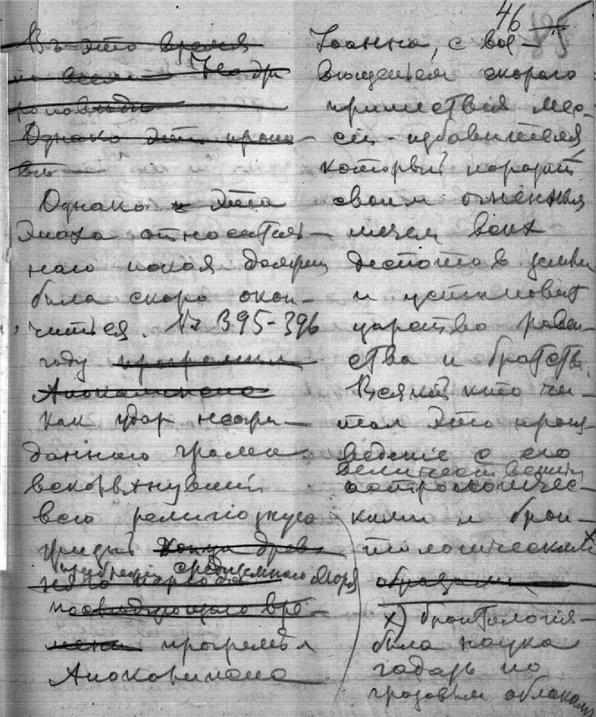 46
Въ это время
Однако эти
Однако эта
эпоха относитель-
наго покоя должна
была скоро окон-
читься. Въ 395-396
году
Апокалипсис
как удар неожи-
даннаго грома
всколыхнувший
всю религиозную
средиземного моря
прогремел
Апокалипсис
Иоанна, с воз-
вещением скораго
пришествия мес-
сии - избавителя
который поразит
своим огненным
мечем всех
деспотов земли
и установит
царство равен-
ства и братства.
Всякий кто чи-
тал это произ-
ведение с его
величественными
астрономичес-
кими и брон-
тологическими х
образами
х) бронтология -
была наука
гадать по
грозовым облакам